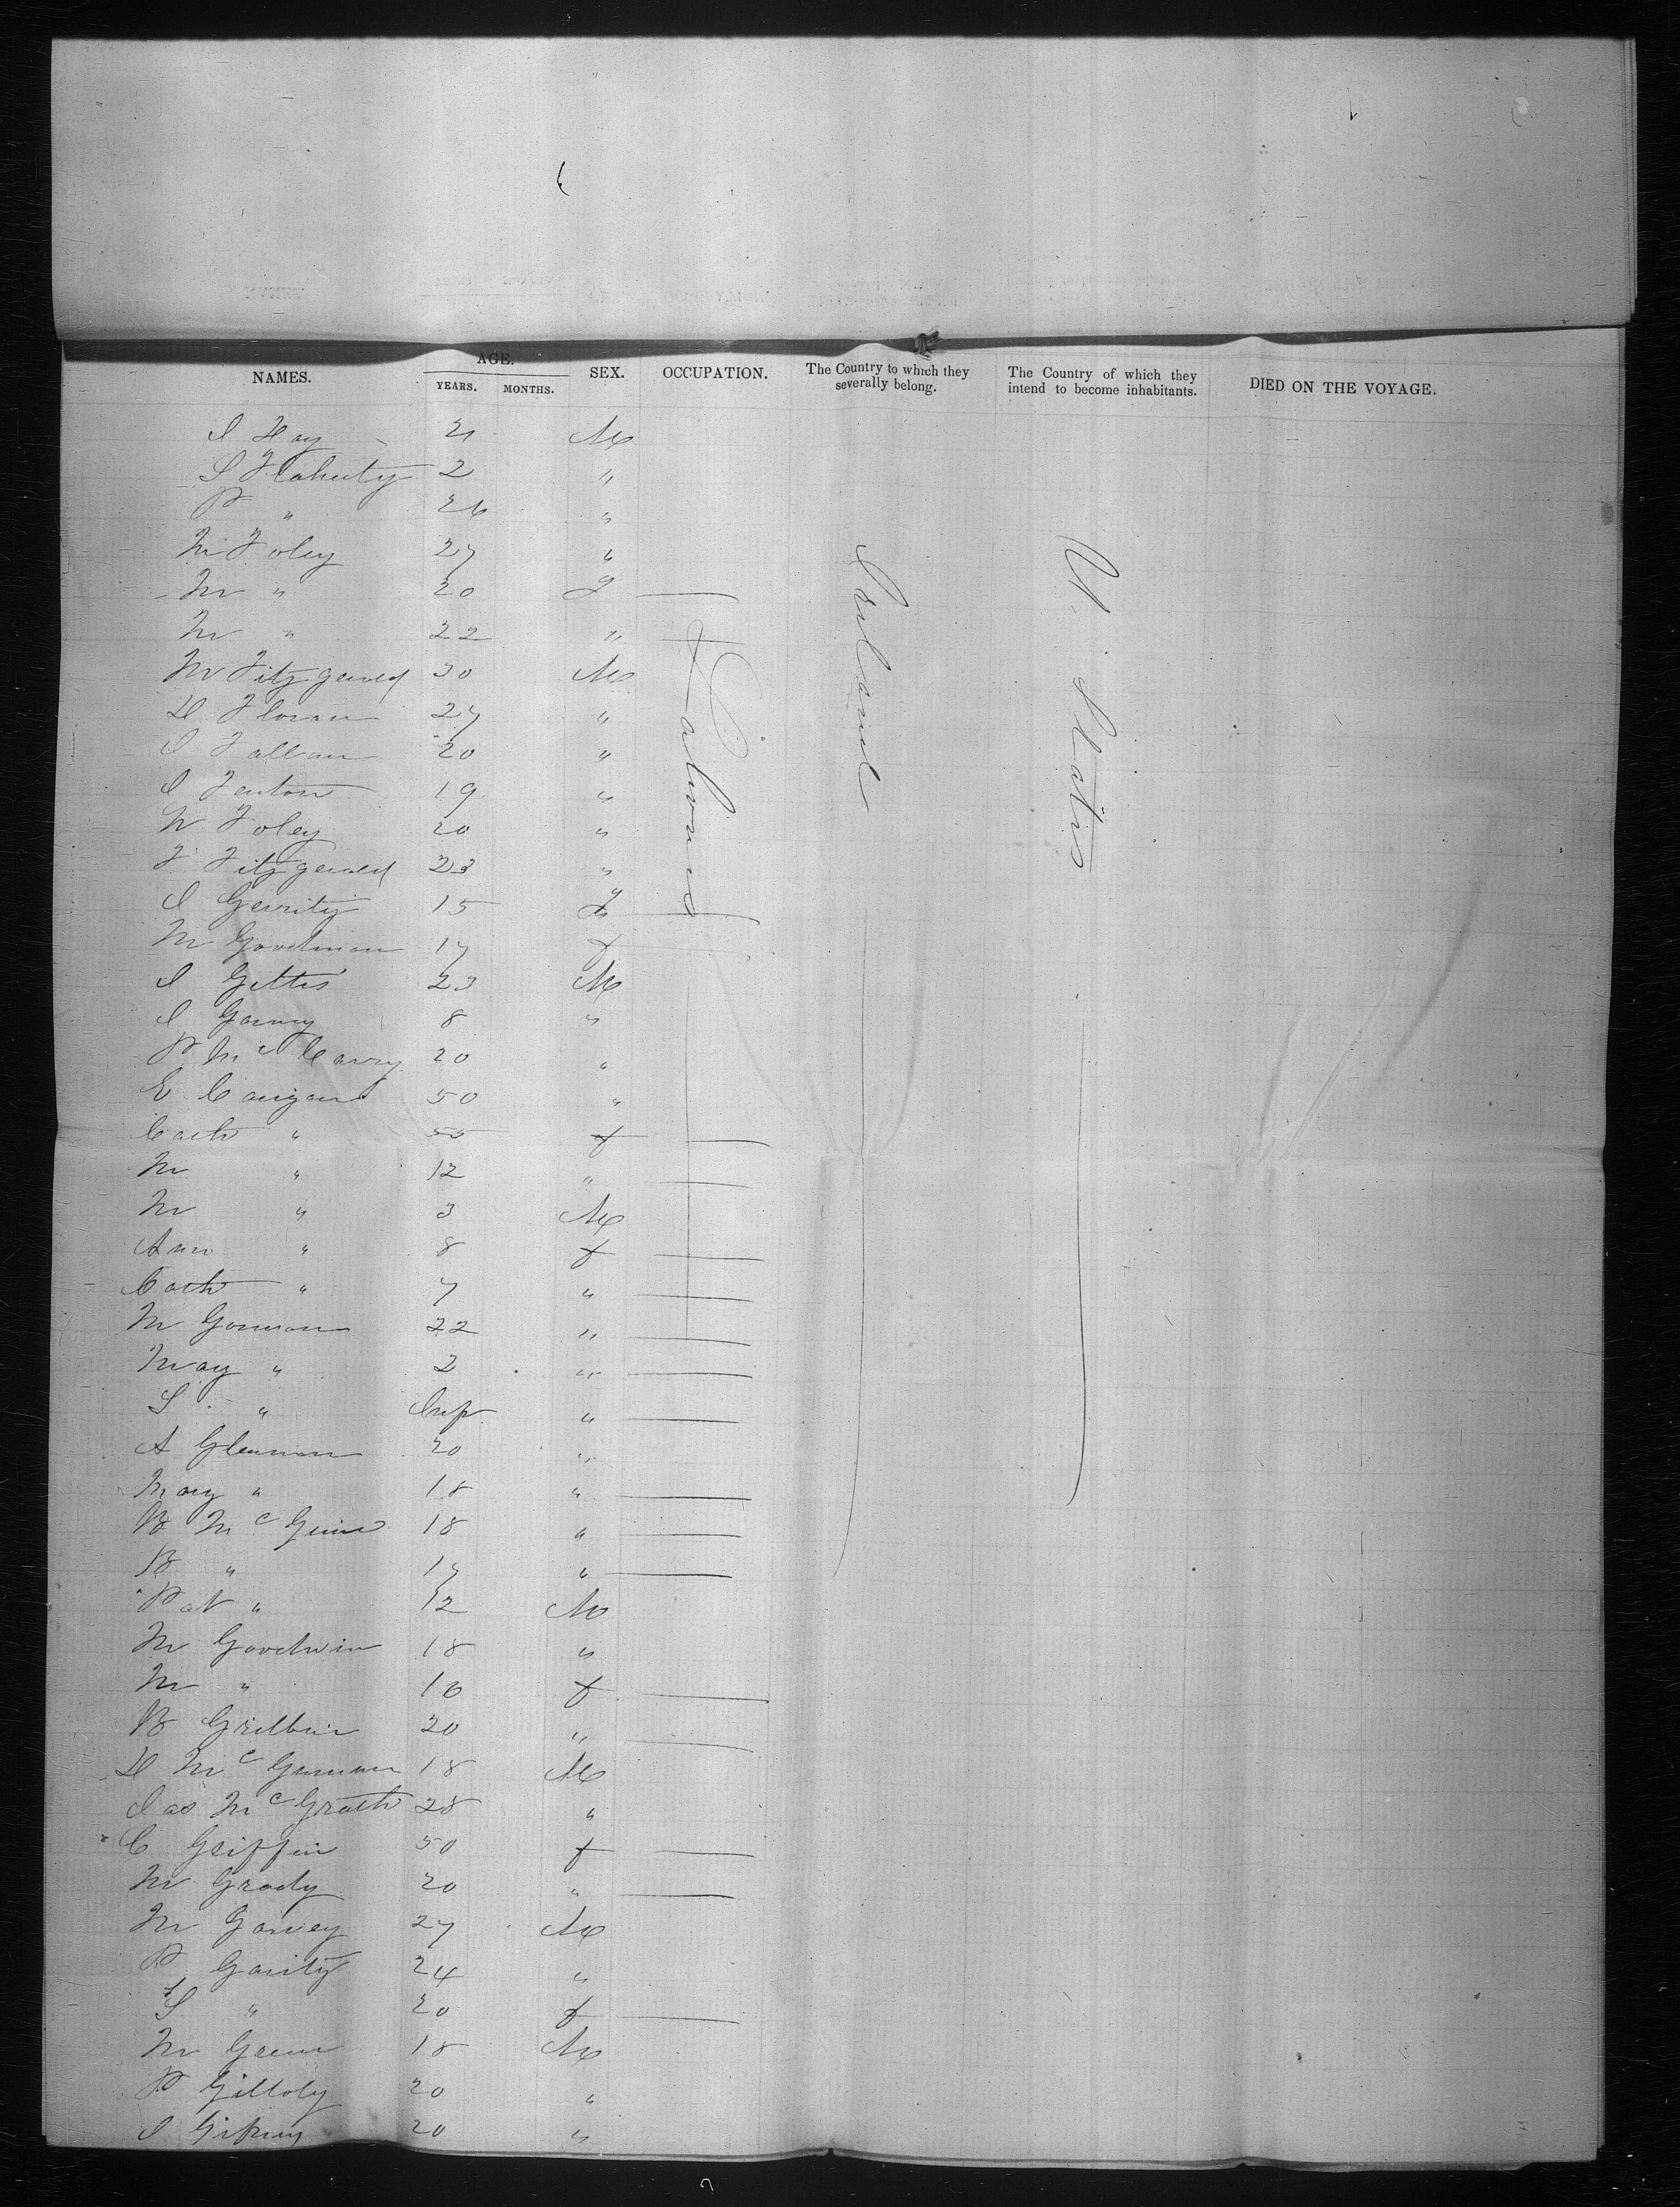 NAMES. AGE. YEARS. MONTHS. SEX. OCCUPATION. The Country to which they severally belong. The Country of which they intend to become inhabitants. DIED ON THE VOYAGE.
Laborers
Ireland
U. States
J Hay 21 M
S Flaherty 2 "
P " 26 "
M Foley 27 "
M " 20 F
M " 22 "
M Fitzgerald 30 M
D Floran 27 "
J Fallan 20 "
J Fenton 19 "
N Foley 20 "
F Fitzgerald 23 "
J Gerrity 15 F
M Goodman 17 f
J Gettis 23 M
J 8 "
P McCarry 20 "
E Cangan 50 "
Cath " 55 f
M " 12 "
M " 3 M
Ann " 8 f
Cath " 7 "
M Gorman 22 "
May " 2 "
S " Inf "
A Glennan 20 "
May " 18 "
B McGinn 18 "
B " 17 "
Pat " 12 M
M Goodwin 18 "
M " 16 f
B 20 "
D McGannan 18 M
Jas McGrath 28 "
C Griffin 50 f
M Grady 20 "
M Garvey 27 M
P Garity 24 "
S " 20 f
M Green 18 M
P Gilloly 20 "
J 20 "